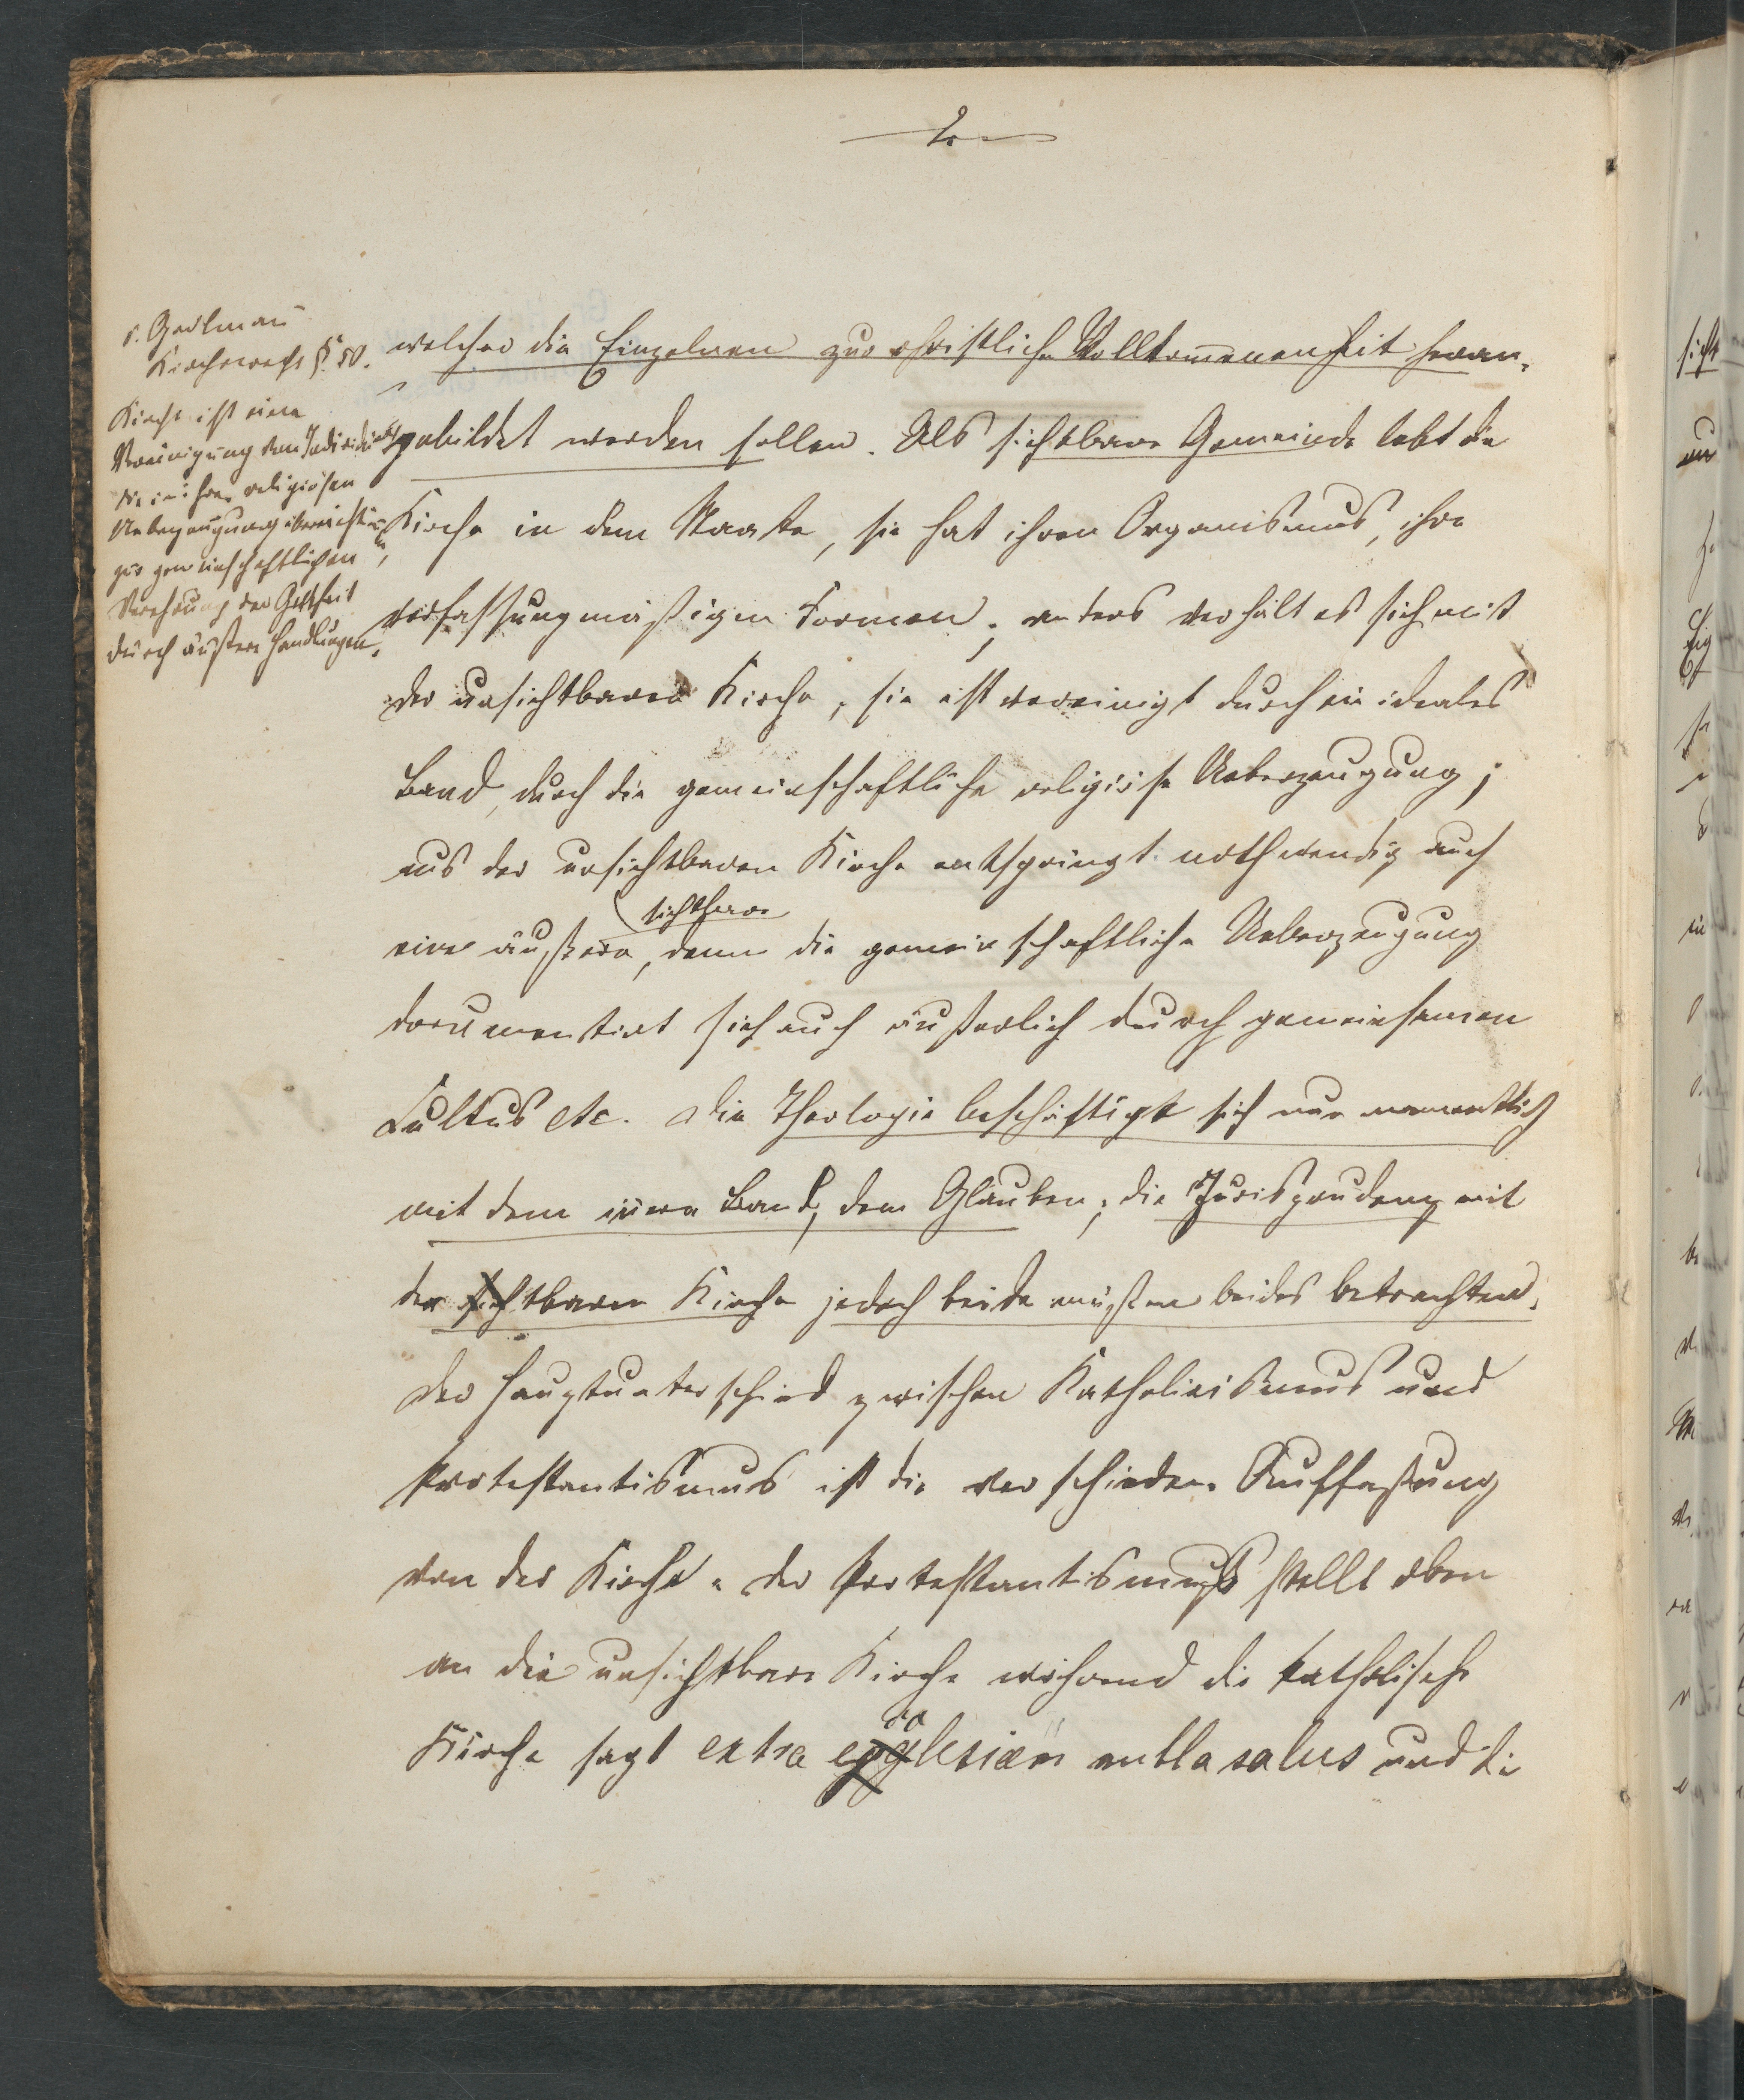 2.
s. Gerlman
Kirchenrecht §. 50.
Kirche ist eine
Vereinigung von Individuen
die in ihrer religiösen
Ueberzeugung übereinstim̄en,
zur gemeinschaftlichen
Verehrung der Gottheit
durch äußere Handlungen.
welcher die Einzelnen zur christlichen Vollkom̄enheit heran-
gebildet werden sollen. Als sichtbare Gemeinde lebt die
Kirche in dem Staate, sie hat ihren Organismus, ihre
verfassungmäßigen Formen; anders verhält es sich mit
der unsichtbaren Kirche, sie ist vereinigt durch ein ideales
Band, durch die gemeinschaftliche religiöse Ueberzeugung;
aus der unsichtbaren Kirche entspringt nothwendig auch
sichtbare
eine äußere, denn die gemeinschaftliche Ueberzeugung
documentirt sich auch äußerlich durch gemeinsamen
Cultus etc. Die Theologie beschäftigt sich nun namentlich
mit dem innern Band, dem Glauben; die Jurisprudenz mit
der sichtbaren Kirche jedoch beide müßen beides betrachten.
Der Hauptunterschied zwischen Katholicismus und
Protestantismus ist die verschiedene Auffaßung
von der Kirche. Der Protestantismus stellt oben
an die unsichtbare Kirche während die katholische
Kirche sagt extra ecclesiam nulla salus und die